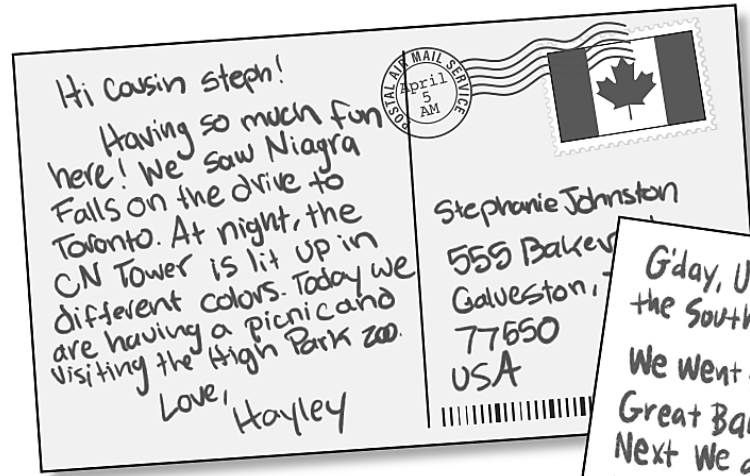 Hi Cousin Steph!
Having so much fun
here! We saw Niagra
Falls on the drive to
Toronto. At night, the
CN Tower is lit up in
different colors. Today we
are having a picnic and
visiting the High Park zoo.
Love,
Hayley
POSTAL AIR MAIL SERVICE
April
5
AM
Stephanie Johnston
555
Galveston,
77550
USA
G'day,
the
We went
Great
Next We